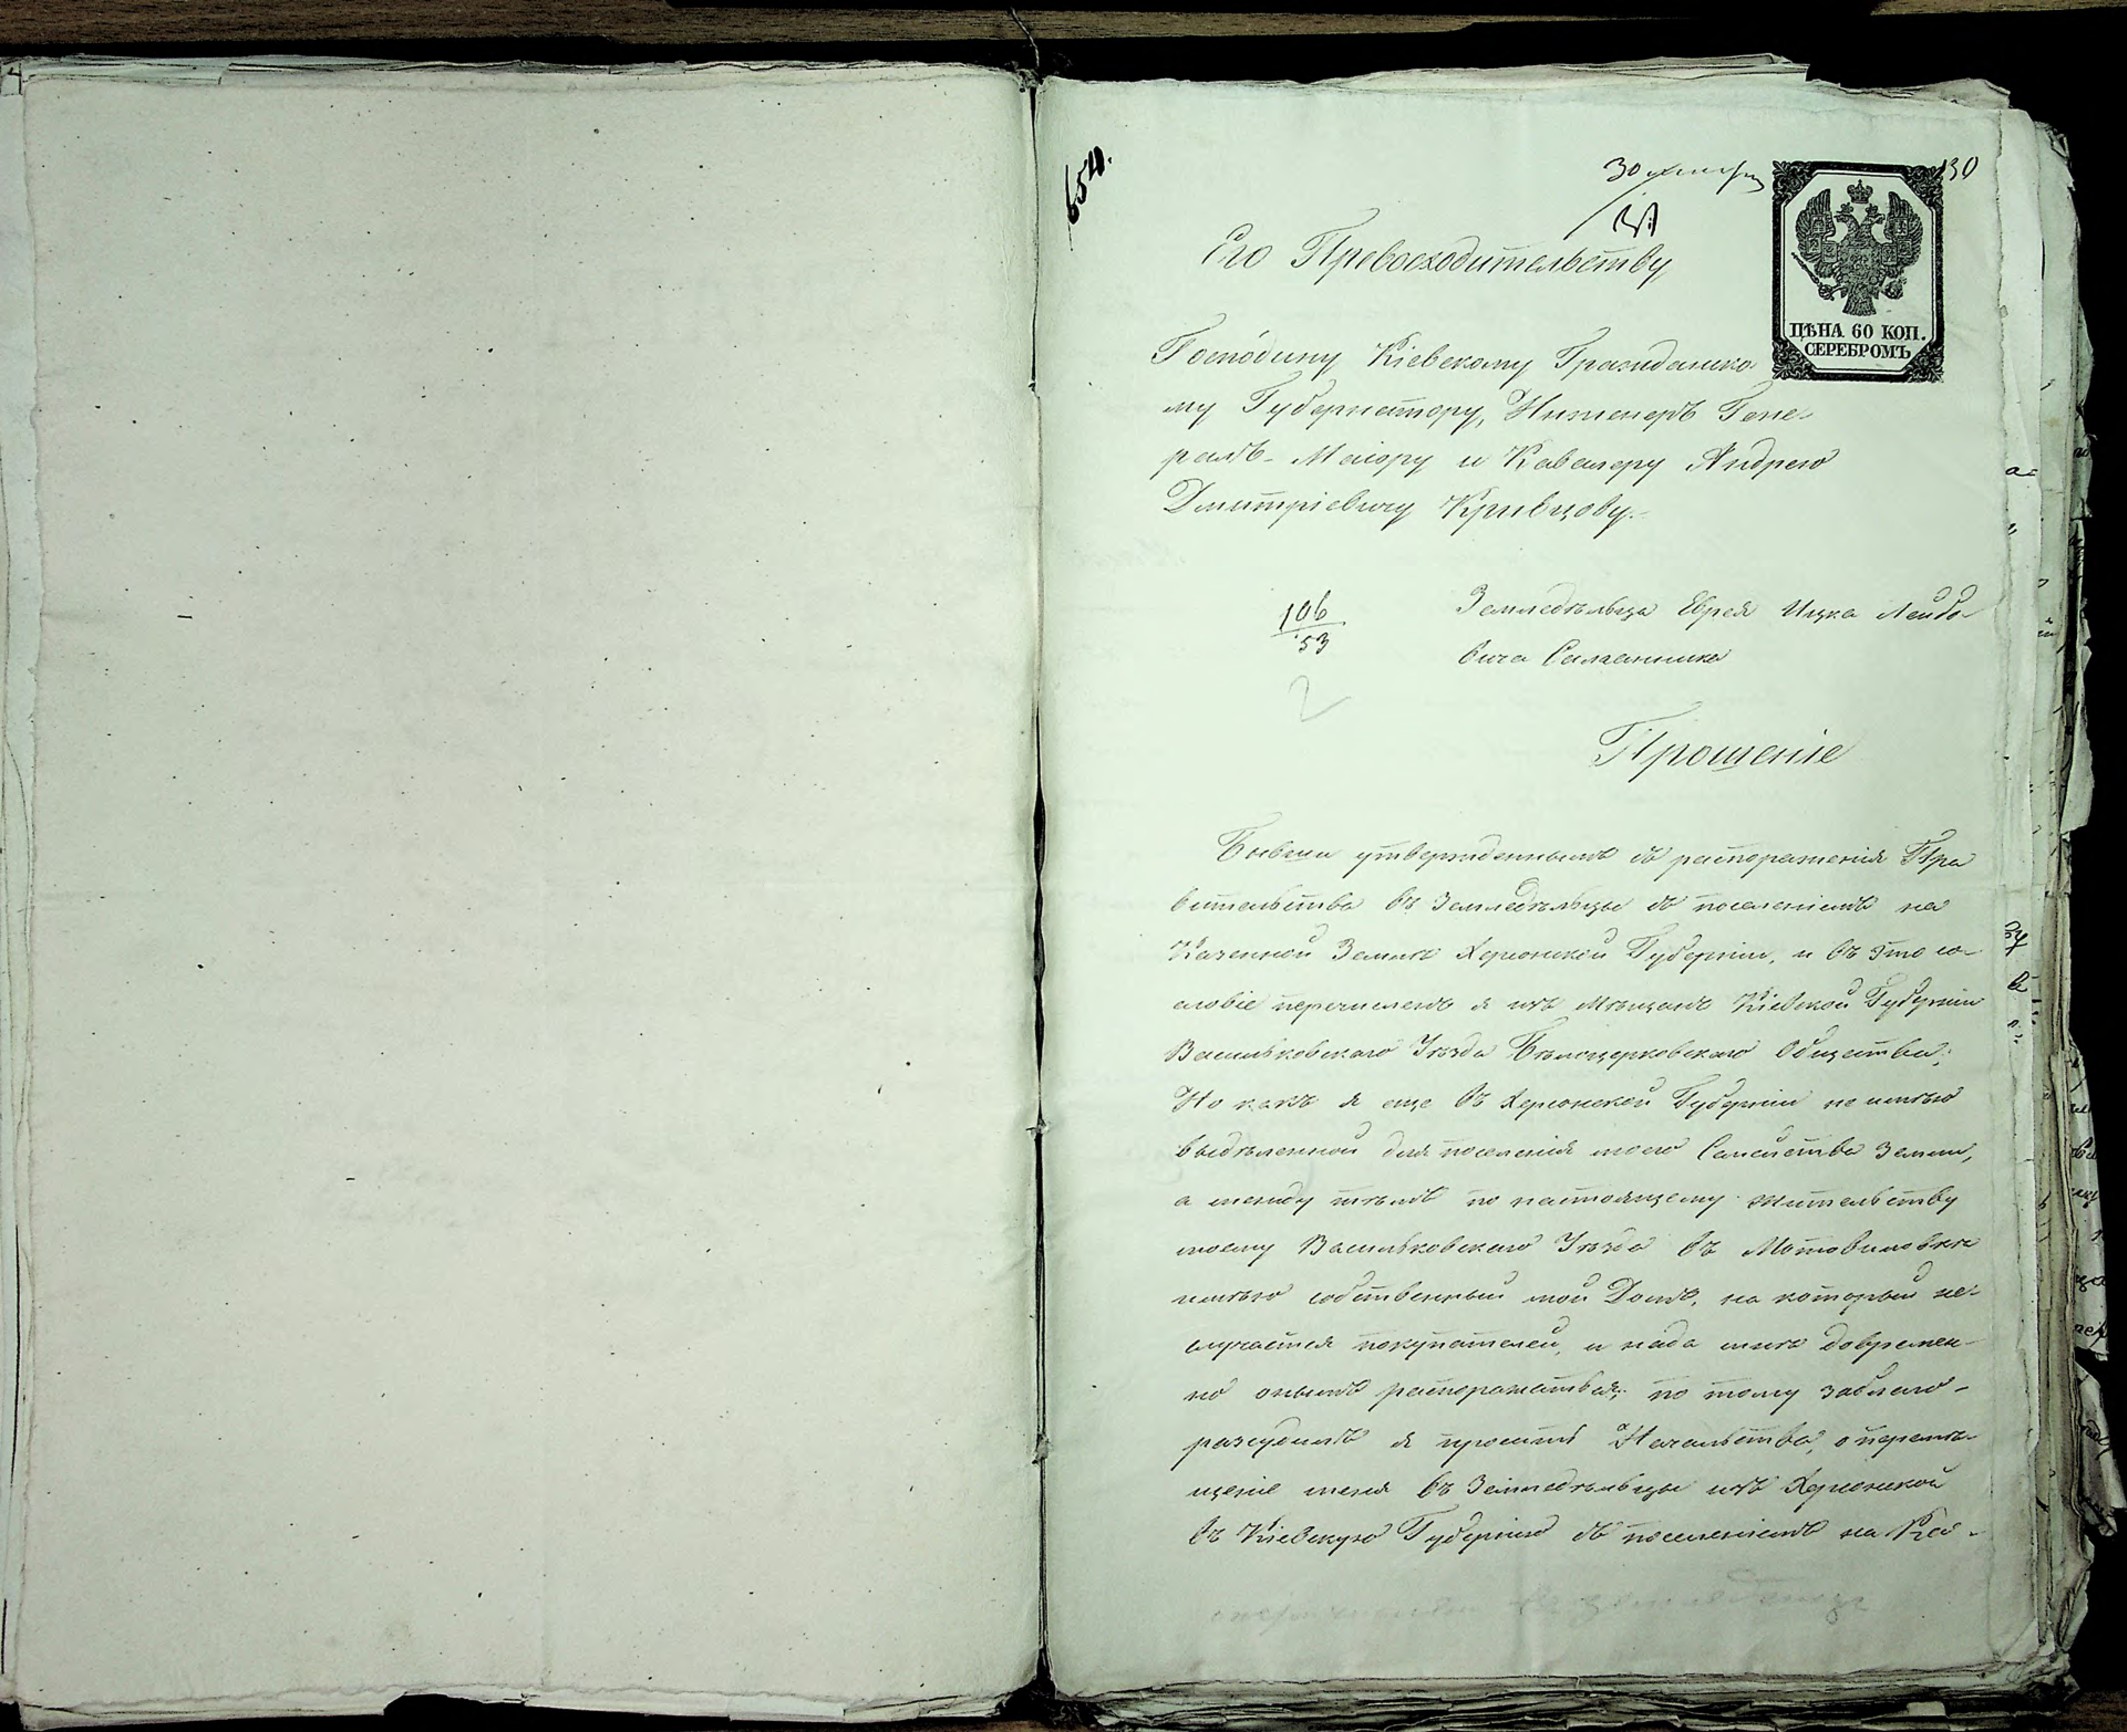 654.
30
130
ЦѢНА 60 КОП.
СЕРЕБРОМЪ
Его Превосходительству
Господину Кіевскому Гражданско-
му Губернатору, Инженеръ Гене-
ралъ-Маіору и Кавалеру Андрею
Дмитріевичу Кривцову.
106
53
2
Земледѣльца Еврея Ицка Лейбо-
вича
Прошеніе
Бывши утвержденнымъ съ распоряженія Пра
вительства въ Земледѣльцы съ поселеніемъ на
Казенной Землѣ Херсонской Губерніи, и въ это со-
словіе перечисленъ я изъ Мѣщанъ Кіевской Губерніи
Васильковского Уѣзда Бѣлоцерковского Общества;
Но какъ я еще въ Херсонской Губерніи не имѣю
выдѣленной для поселенія моего Семейства Земли,
а между тѣмъ по настоящему жительству
моему Васильковского Уѣзда въ Мотовиловкѣ
имѣю собственный мой Домъ, на который не-
случается покупателей, и надо мнѣ
но онымъ распоряжаться; по тому заблаго-
разсудилъ я просить Начальство, о перемѣ-
щеніе меня въ Земледѣльцы изъ Херсонской
въ Кіевскую Губернію съ поселеніемъ на Каз-